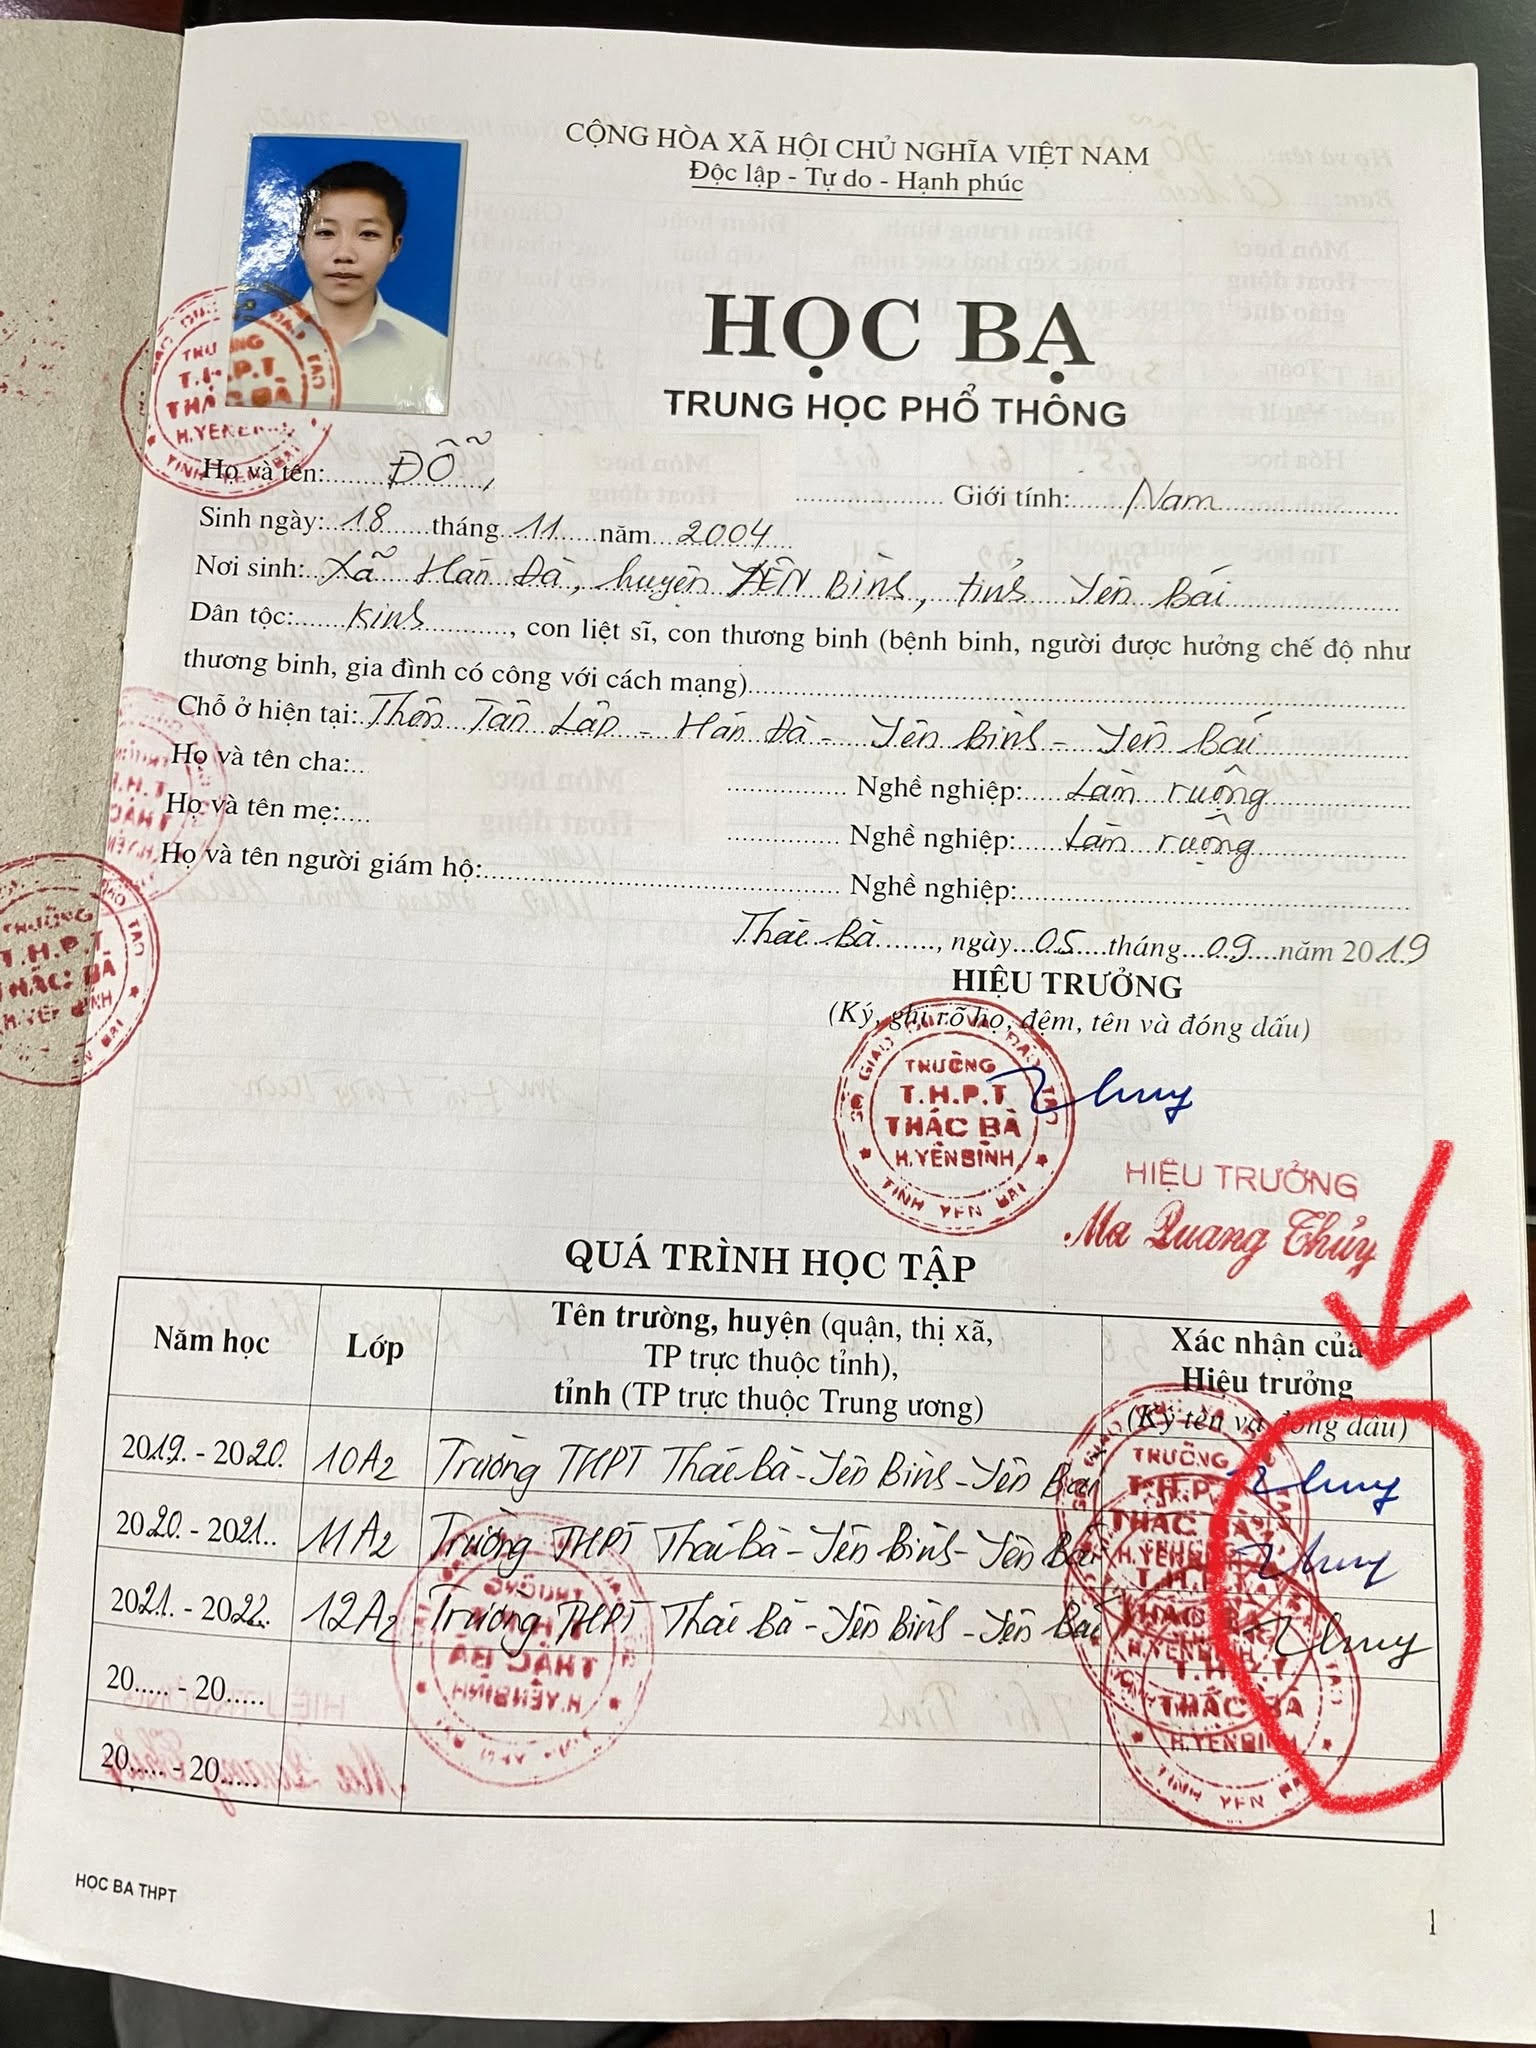 CỘNG HÒA XÃ HỘI CHỦ NGHĨA VIỆT NAM
Độc lập - Tự do - Hạnh phúc
HỌC BẠ
TRUNG HỌC PHỔ THÔNG
Họ và tên:.......ĐỖ............ Giới tính:......Nam
Sinh ngày:.18......tháng..11......năm...2004
Nơi sinh:..Xã Hán Đà, huyện YÊN Bình, tỉnh Yên Bái
Dân tộc:......Kinh............, con liệt sĩ, con thương binh (bệnh binh, người được hưởng chế độ như
thương binh, gia đình có công với cách mạng)
Chỗ ở hiện tại:.Thôn Tân Lập - Hán Đà - Yên Bình - Yên Bái
Họ và tên cha:.. Nghề nghiệp:......Làm ruộng
Họ và tên mẹ:.... Nghề nghiệp:......Làm ruộng
Họ và tên người giám hộ: Nghề nghiệp:
Thác Bà......., ngày...05....tháng...09...năm 2019
HIỆU TRƯỞNG
(Ký, ghi rõ họ, đệm, tên và đóng dấu)
SỞ GIÁO DỤC VÀ ĐÀO TẠO
TRƯỜNG
T.H.P.T
THÁC BÀ
H.YÊN BÌNH
TỈNH YÊN BÁI
Thuy
HIỆU TRƯỞNG
Ma Quang Thủy
QUÁ TRÌNH HỌC TẬP
Năm học Lớp Tên trường, huyện (quận, thị xã, TP trực thuộc tỉnh), tỉnh (TP trực thuộc Trung ương) Xác nhận của Hiệu trưởng (Ký tên và đóng dấu)
2019. - 2020. 10A2 Trường THPT Thác Bà - Yên Bình - Yên Bái Thuy
2020. - 2021.. 11A2 Trường THPT Thác Bà - Yên Bình - Yên Bái Thuy
2021. - 2022. 12A2 Trường THPT Thác Bà - Yên Bình - Yên Bái Thuy
20..... - 20.....
20..... - 20.....
HỌC BA THPT
1